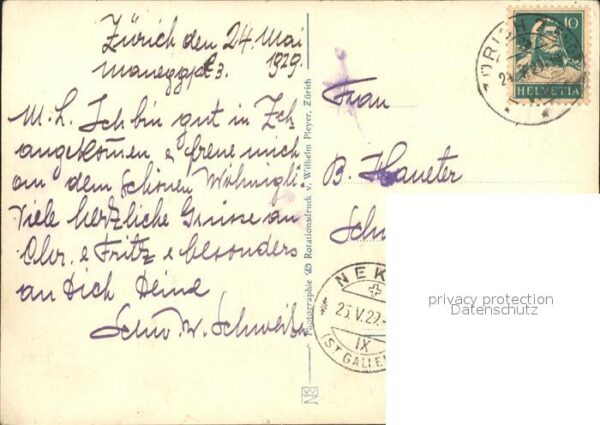 Zürich den 24. Mai
Maneggpl 3. 1929.
M. L. Ich bin gut in Zch
angekommen & freue mich
an dem schönen Wohnigli.
Viele herzliche Grüsse an
Chr. & Fritz & besonders
an Dich Deine
Schw. W.
Photographie & Rotationsdruck v. Wilhelm Pleyer, Zürich
Frau
B. Haueter
Sch
10
HELVETIA
ZÜRICH
NEK
25.V.29
IX
(ST. GALLEN
privacy protection
Datenschutz